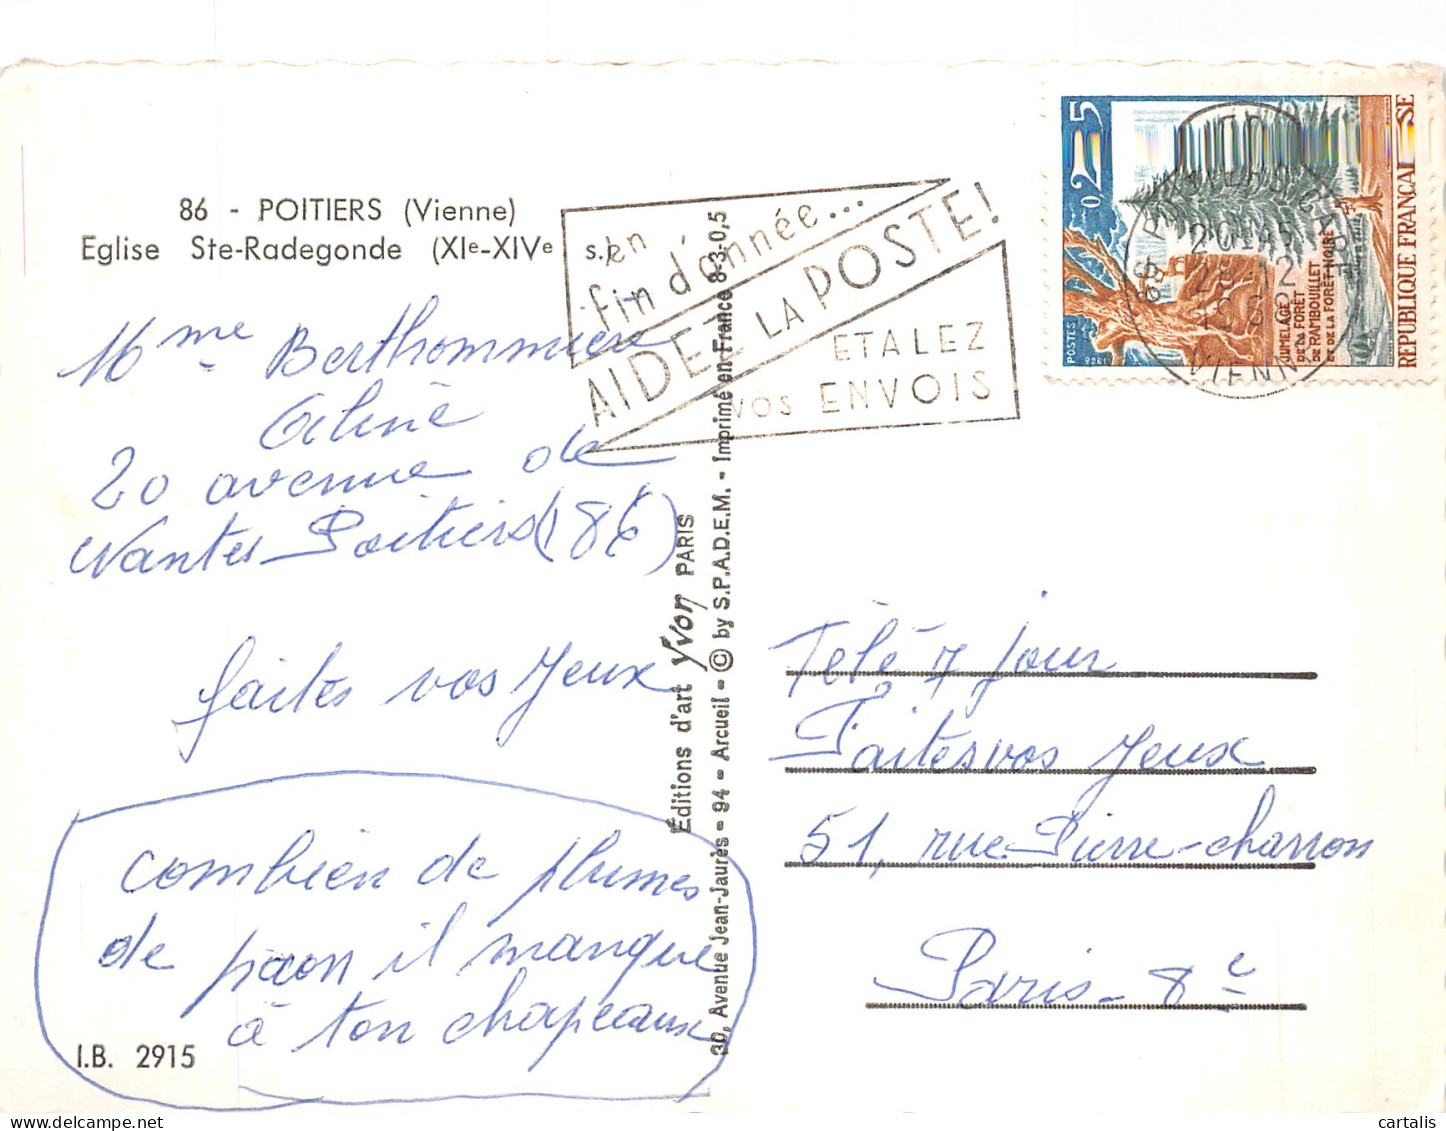 86 - POITIERS (Vienne)
Eglise Ste-Radegonde (XIe-XIVe s.)
Mme Berthommière
Céline
20 avenue de
Nantes Poitiers (86)
faites vos Jeux
combien de plumes
de paon il manque
à ton chapeaux
I.B. 2915
Editions d'art Yvon PARIS
30, Avenue Jean-Jaurès - 94 - Arcueil - © by S.P.A.D.E.M. - Imprimé en France 8-3-0,5
en
fin d'année...
AIDEZ LA POSTE!
ETALEZ
VOS ENVOIS
0,25
POSTES
1968
JUMELAGE
DE LA FORÊT
DE RAMBOUILLET
ET DE LA FORÊT NOIRE
REPUBLIQUE FRANÇAISE
86 POITIERS GARE
20H45
28-12
VIENNE
Télé 7 jour
Faites vos Jeux
51, rue Pierre-charron
Paris - 8e
cartalis